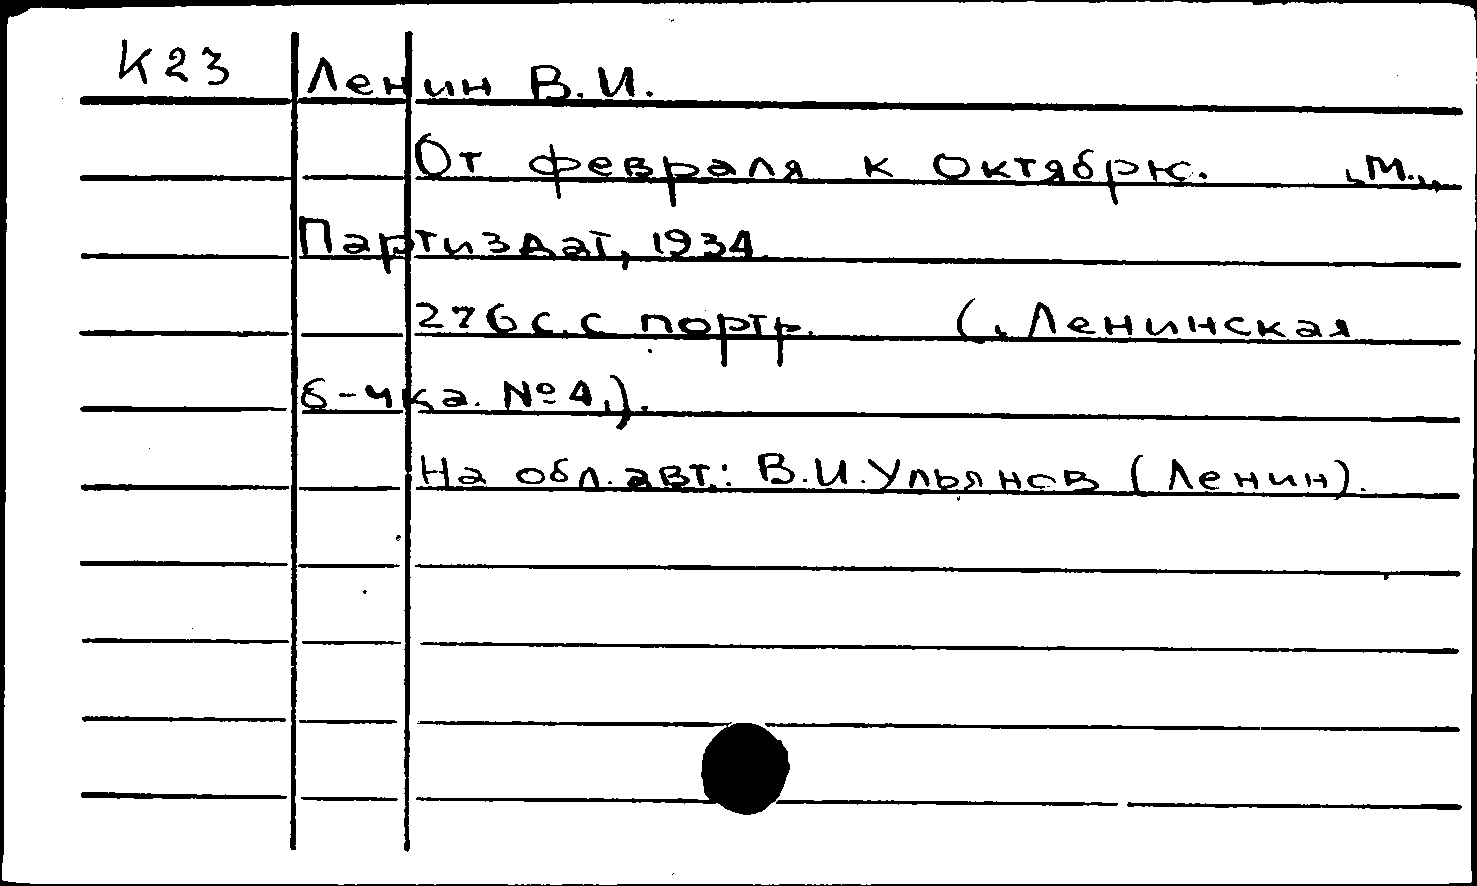 К23
Ленин В.И.
От февраля к октябрю. „М.„
Партиздат, 1934.
276 с. с портр. („Ленинская
б-чка. № 4„).
На обл. авт.: В.И. Ульянов (Ленин).